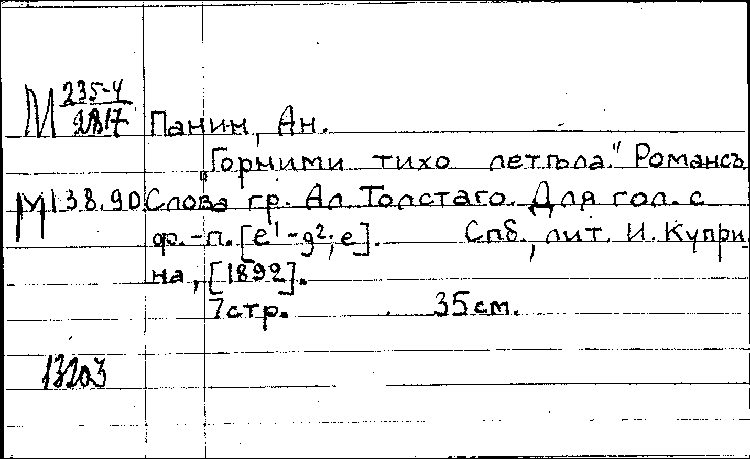 М 235-4
2817
Панин, Ан.
„Горними тихо летѣла." Романсъ
М 138.90 Слова гр. Ал. Толстаго. Для гол. с
ф.-п. [e¹-g²; e]. Спб., лит. И. Купри
на, [1892].
7 стр. 35 см.
13203